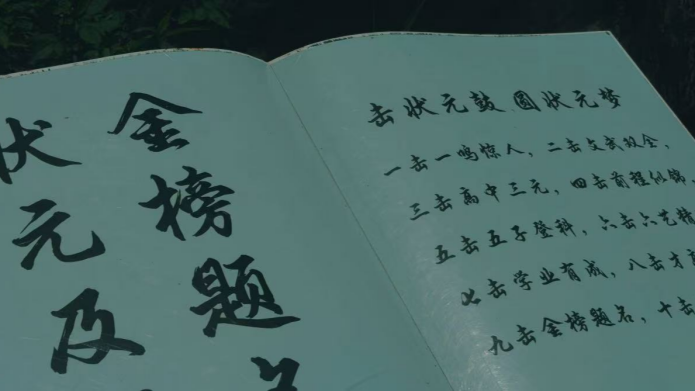 金榜题
状元及
击状元鼓 圆状元梦
一击一鸣惊人，二击文武双全，
三击高中三元，四击前程似锦，
五击五子登科，六击六艺精
七击学业有成，八击才
九击金榜题名，十击